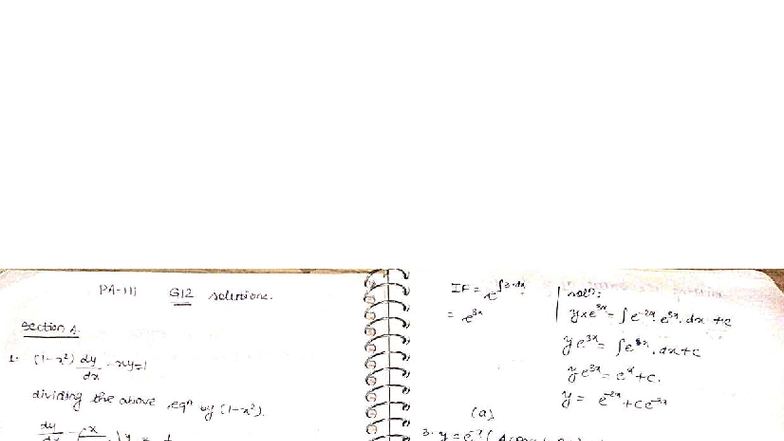 PA-III G12 solutions.
Section A.
1. (1-x²) dy/dx - xy=1
dividing the above eqⁿ by (1-x²).
IF = e^∫3·dx
= e^3x
solⁿ:
y×e^3x = ∫e^-2x. e^3x. dx +c
y e^3x = ∫e^x. dx+c
y e^3x = e^x +c.
y = e^-2x + ce^-3x
(a)